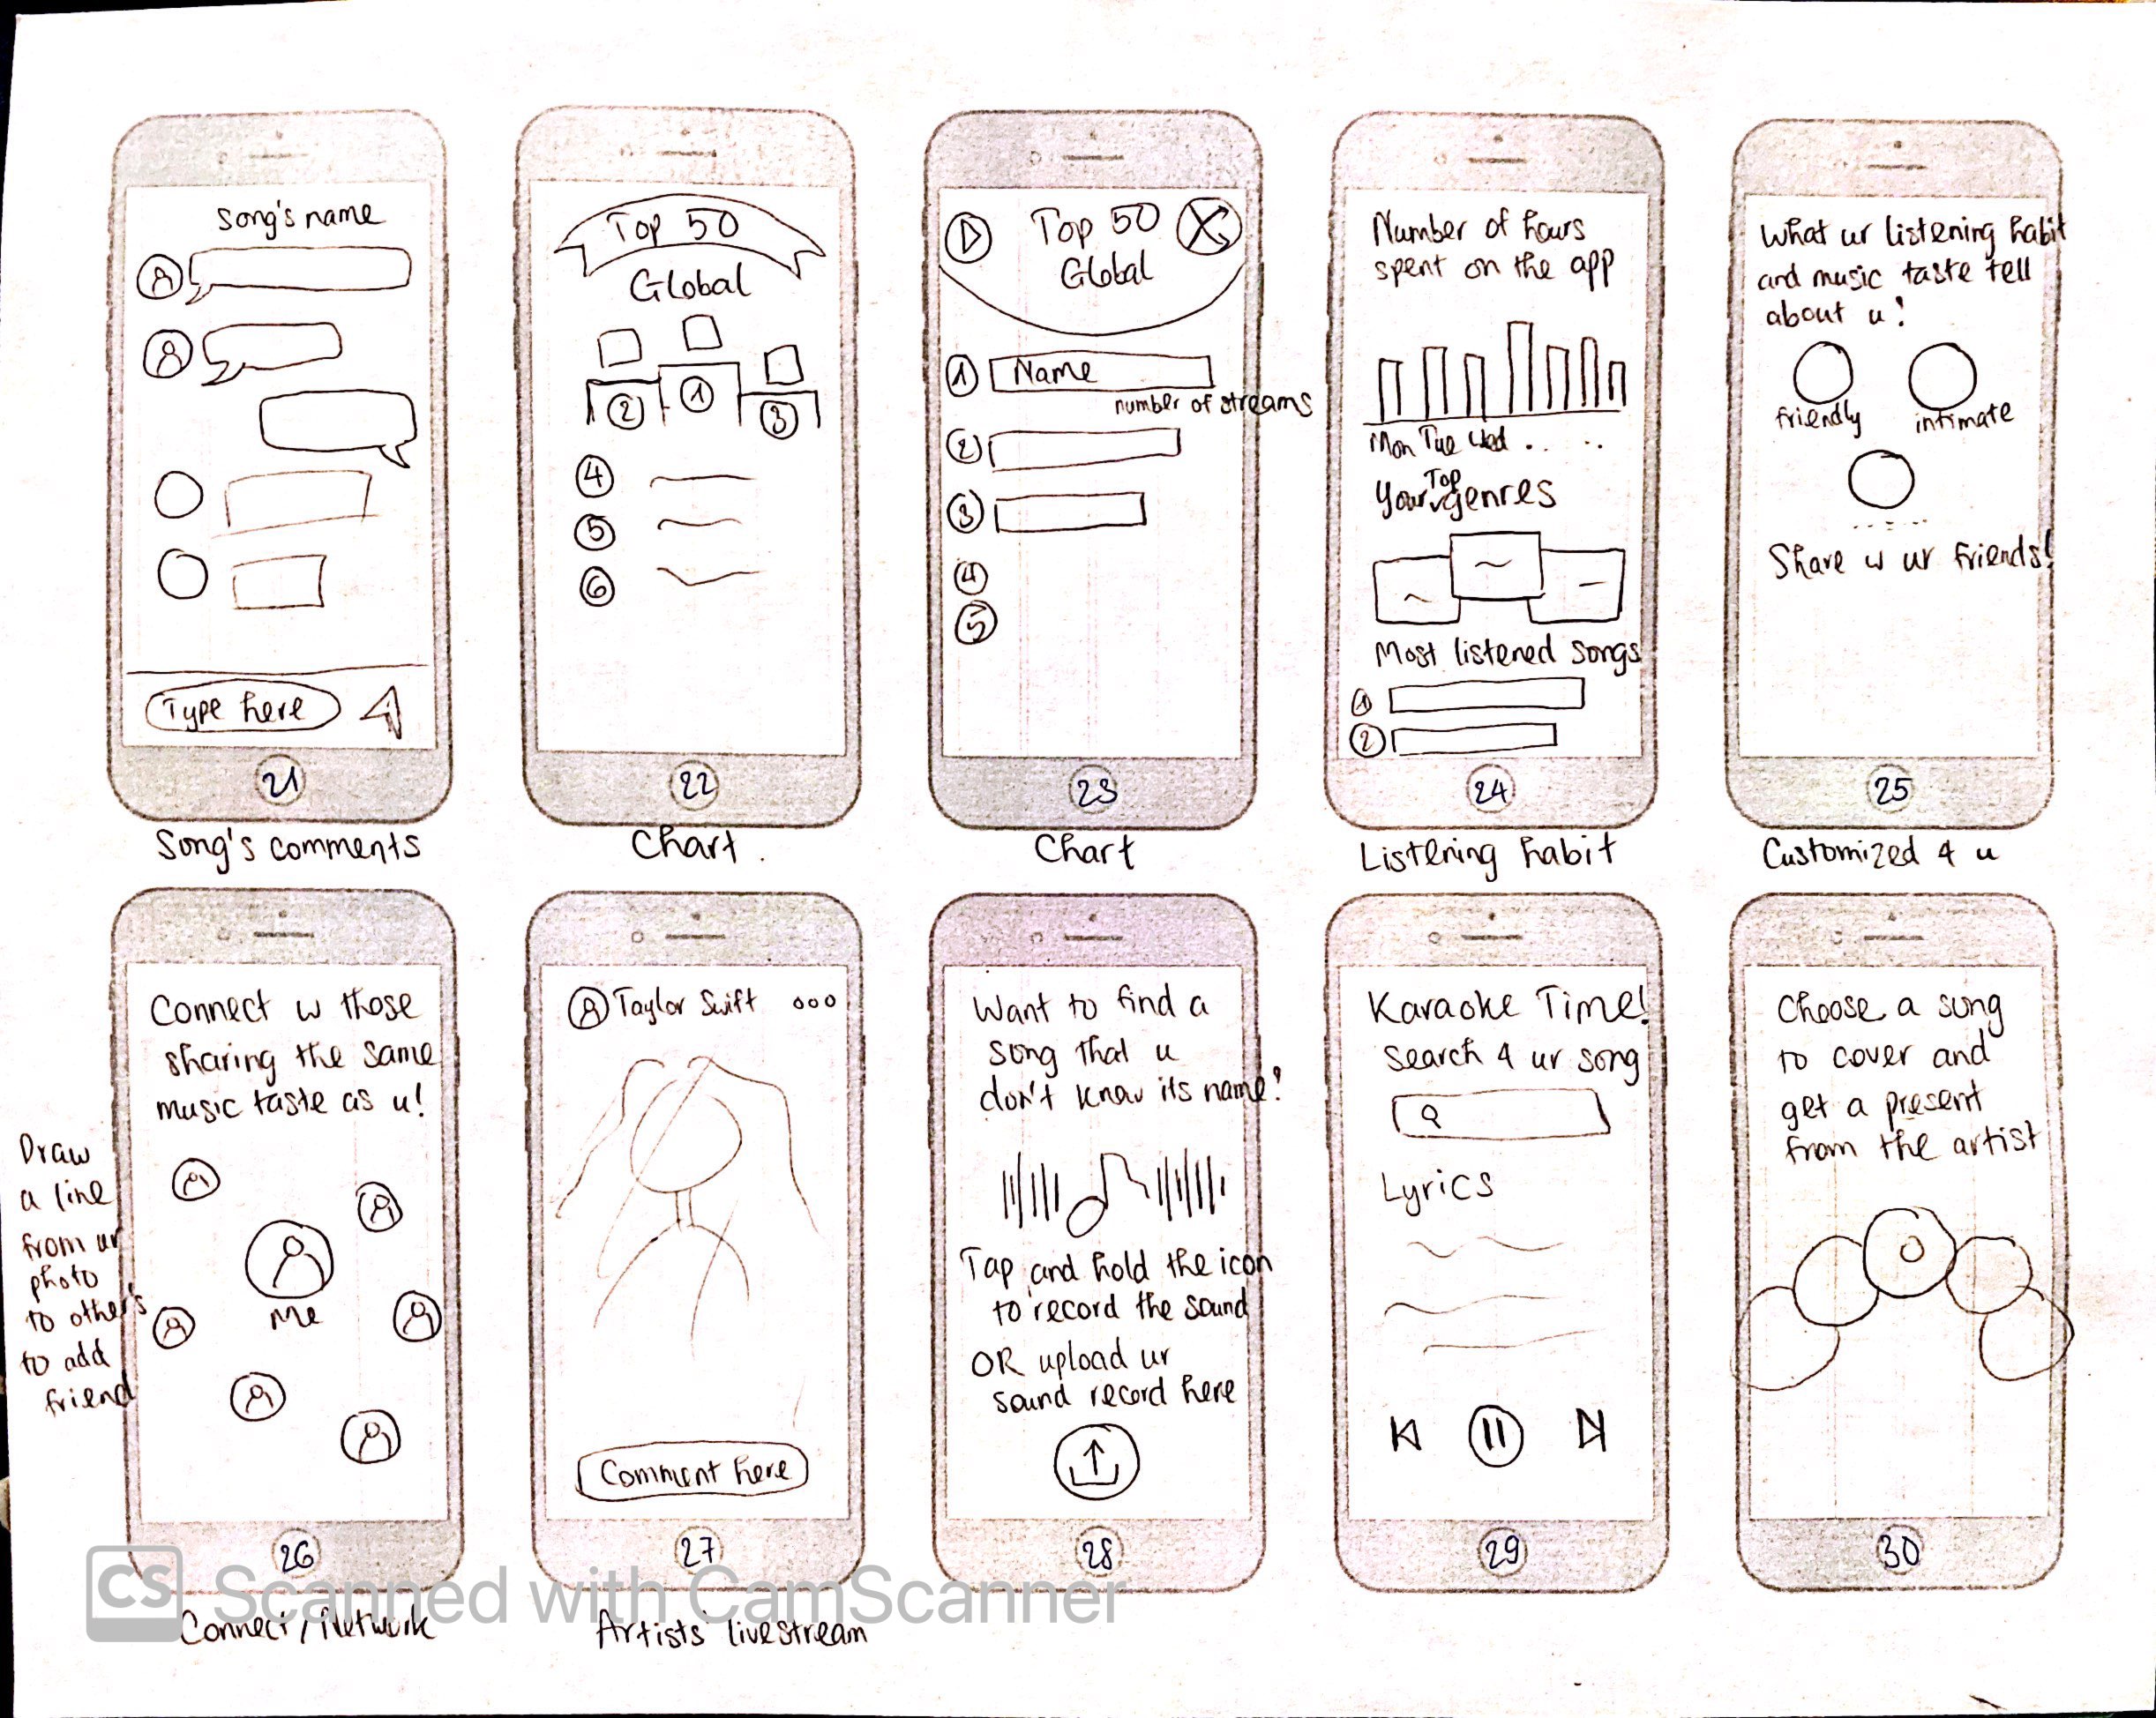 Song's name
Type here
21
Song's comments
Top 50
Global
2
1
3
4
5
6
22
Chart.
Top 50
Global
1 Name
number of streams
2
3
4
5
23
Chart
Number of hours
spent on the app
Mon Tue Wed .. ..
Your Top genres
Most listened songs
1
2
24
Listening habit
What ur listening habit
and music taste tell
about u?
friendly
intimate
Share w ur friends!
25
Customized 4 u
Connect w those
sharing the same
music taste as u!
Me
Draw
a line
from ur
photo
to other's
to add
friend
26
Connect/Network
Taylor Swift ooo
Comment here
27
Artists' livestream
Want to find a
song that u
don't know its name?
Tap and hold the icon
to record the sound
OR upload ur
sound record here
28
Karaoke Time!
Search 4 ur song
Lyrics
29
Choose a song
to cover and
get a present
from the artist
30
CS Scanned with CamScanner